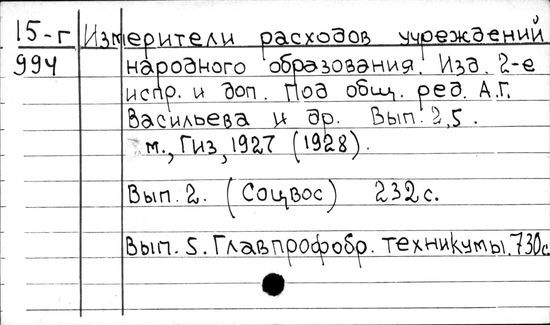 15-г Измерители расходов учреждений
994 народного образования. Изд. 2-е
испр. и доп. Под общ. ред. А.Г.
Васильева и др. Вып. 2,5.
М., Гиз, 1927 (1928).
Вып. 2. (Соцвос) 232с.
Вып. 5. Главпрофобр. техникумы. 730с